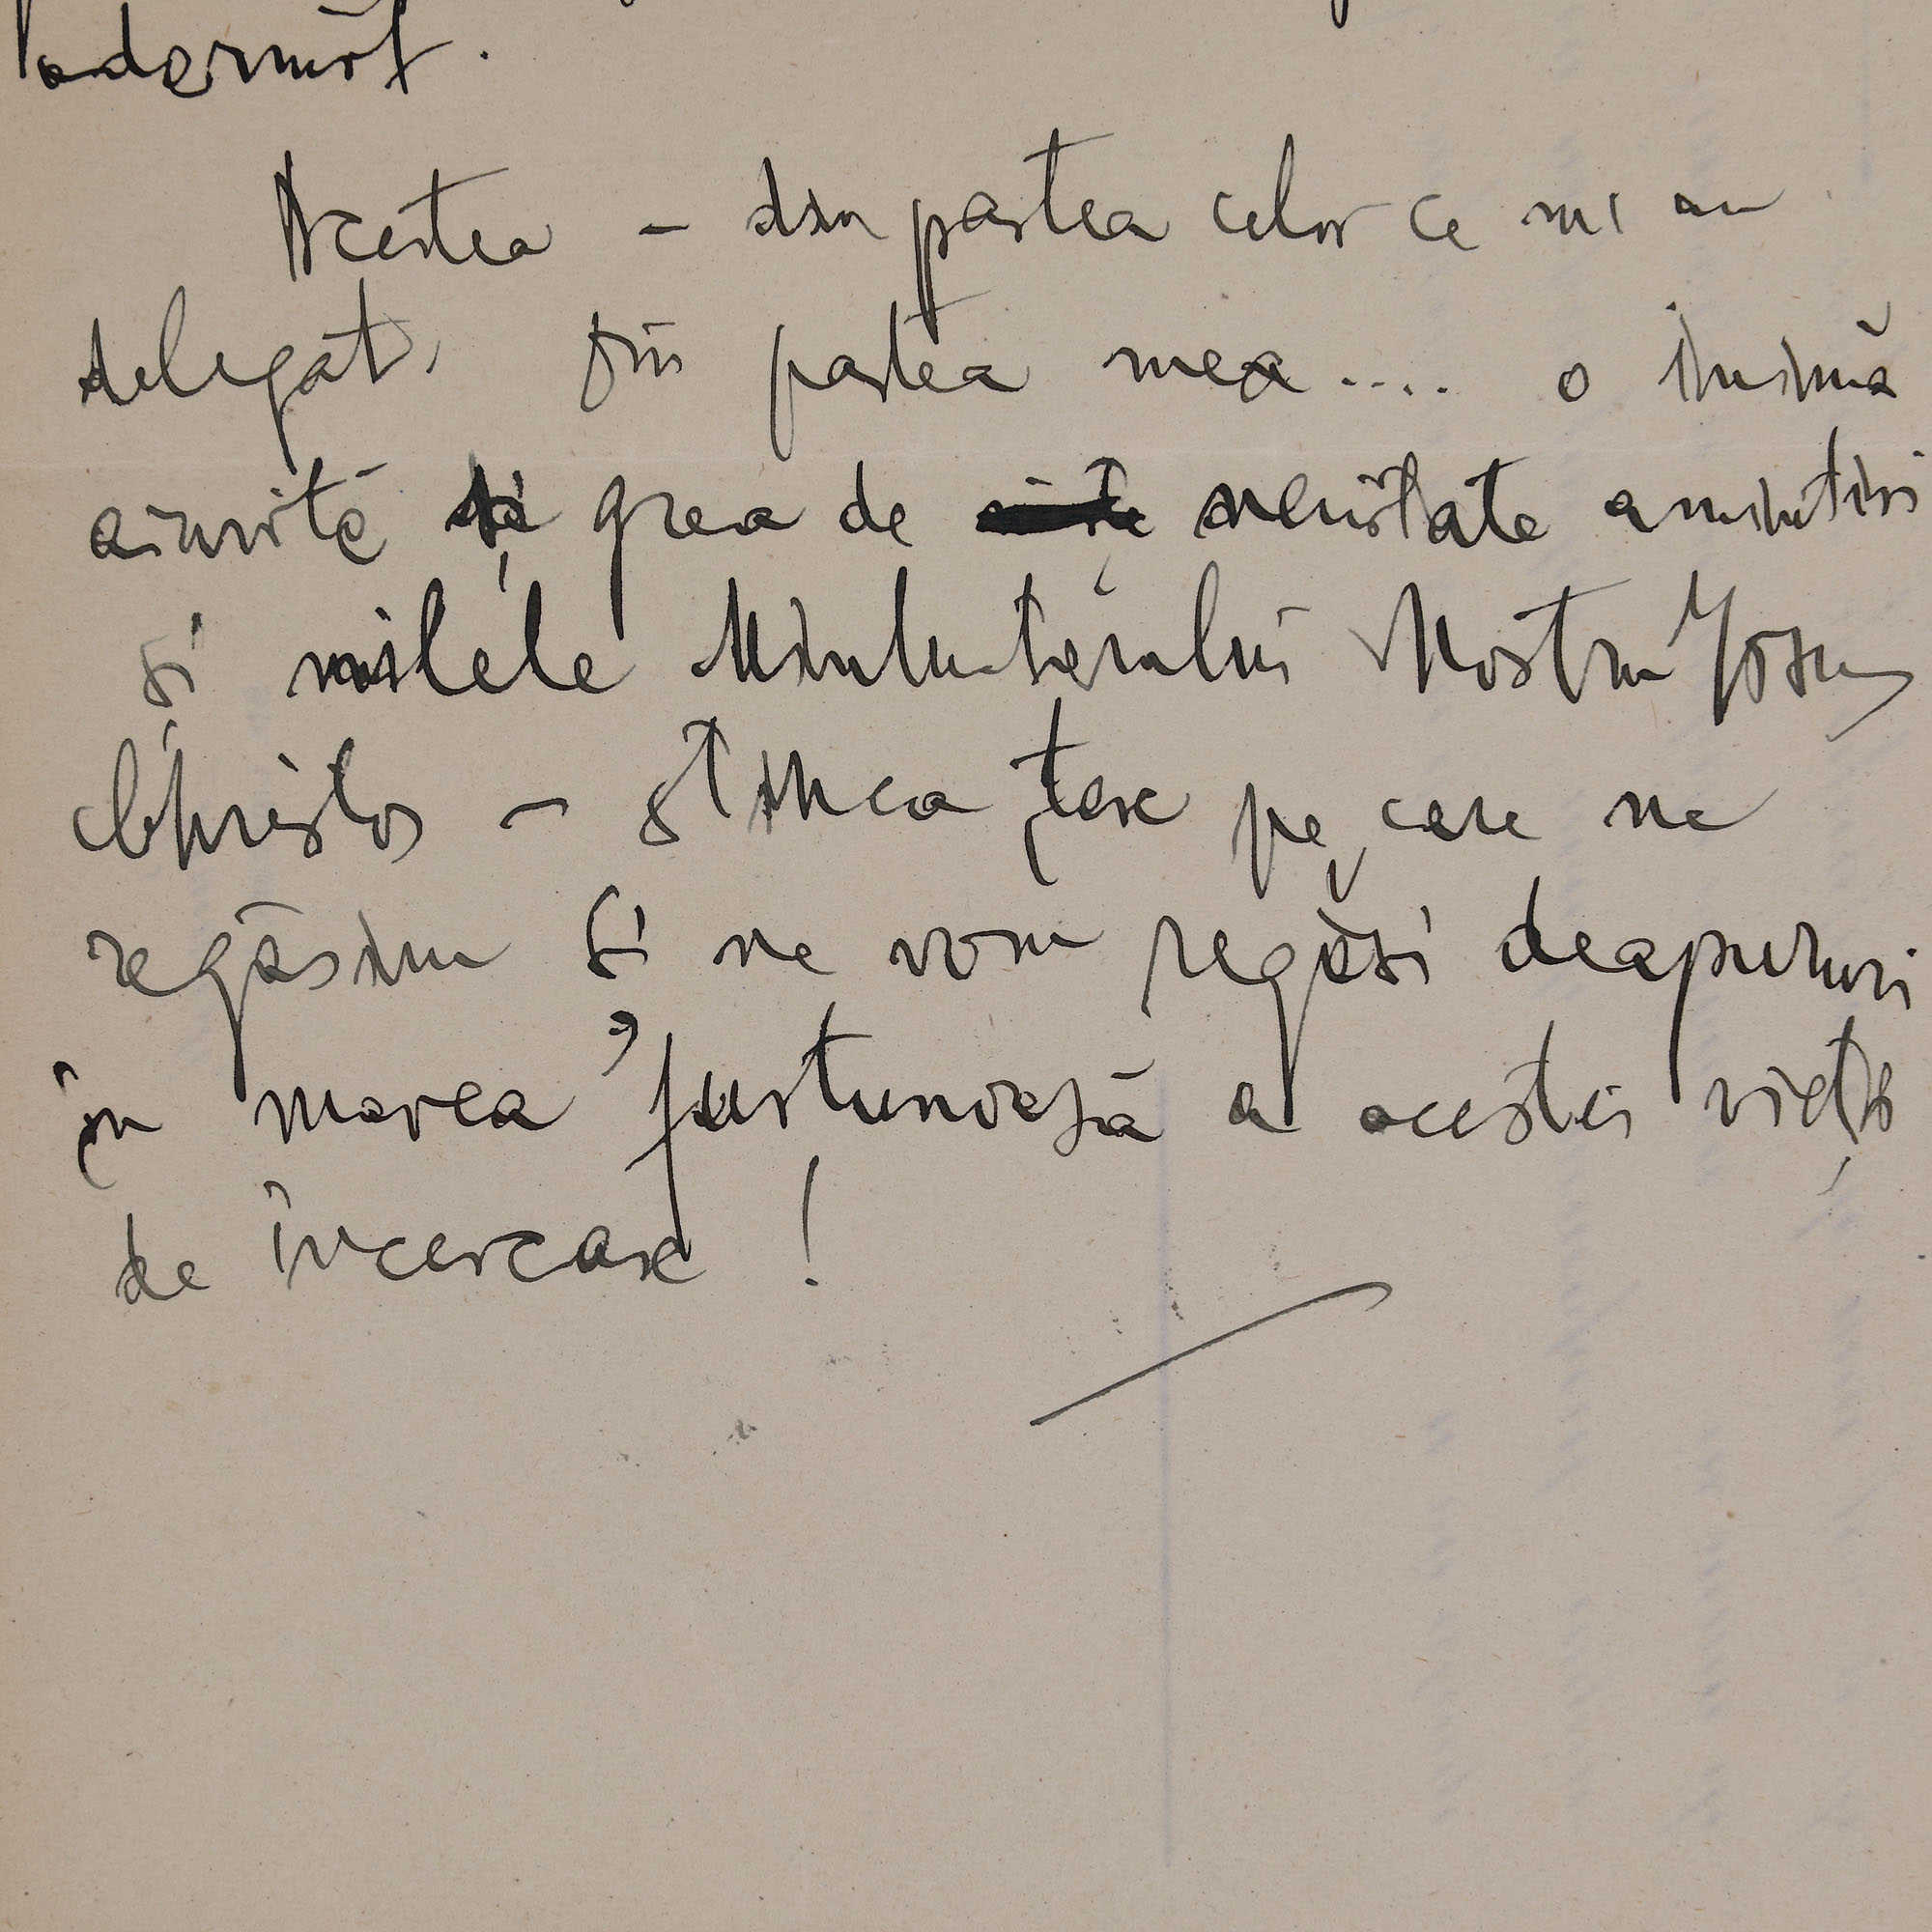 adormit.
Acestea – din partea celor ce m'au
delegat. Din partea mea.... o inimă
aiurită și grea de neuitate amintiri
și milele Mântuitorului Nostru Iisus
Christos – stânca tare pe care ne
regăsim și ne vom regăsi deapururi
în marea furtunoasă a acestei vieți
de încercare !